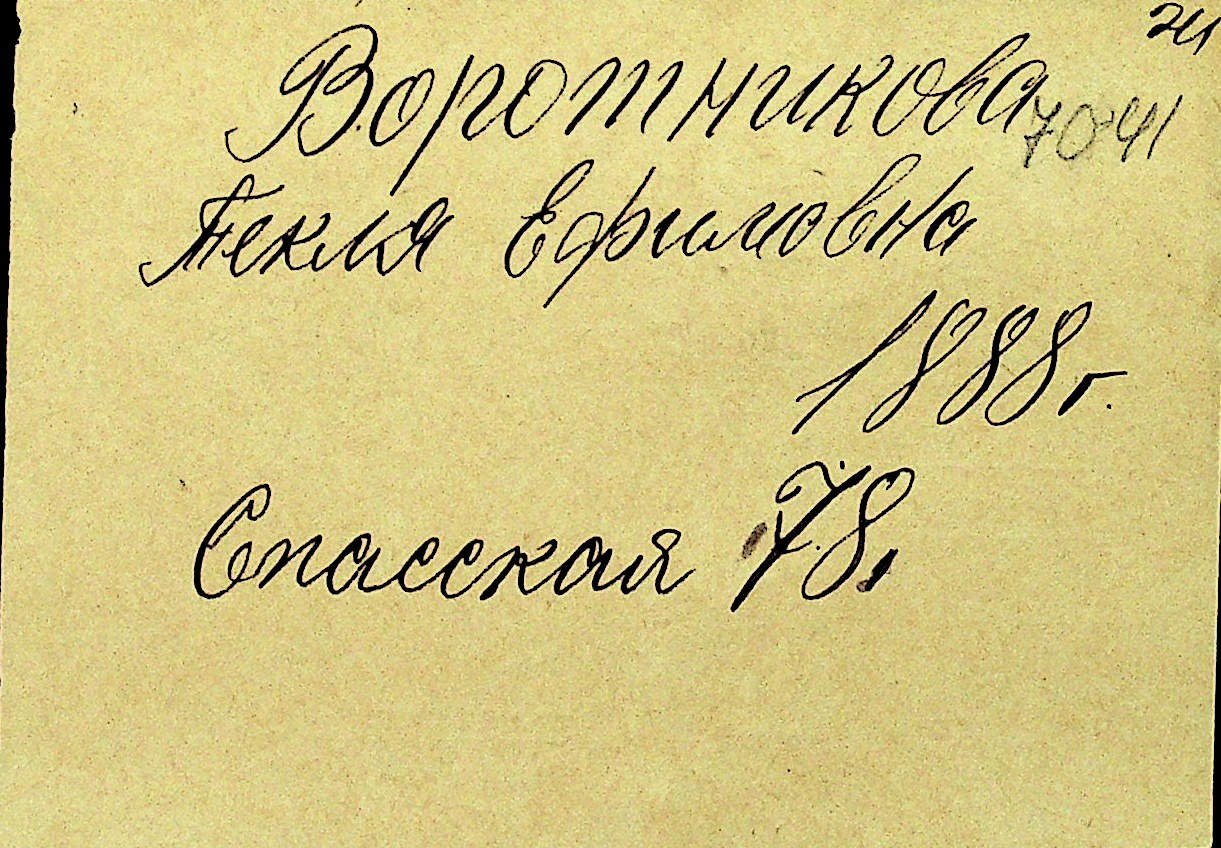 Воротникова
7041
Текля Ефимовна
1888 г.
Спасская 78.